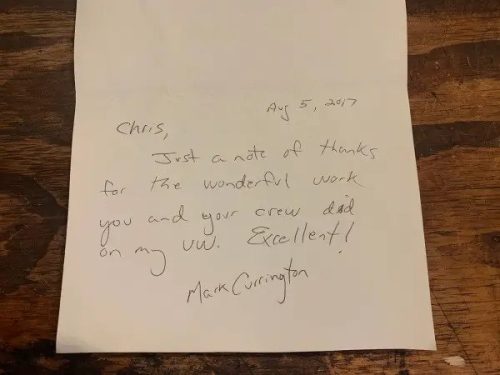 Aug 5, 2017
Chris,
Just a note of thanks
for the wonderful work
you and your crew did
on my VW. Excellent!
Mark Currington